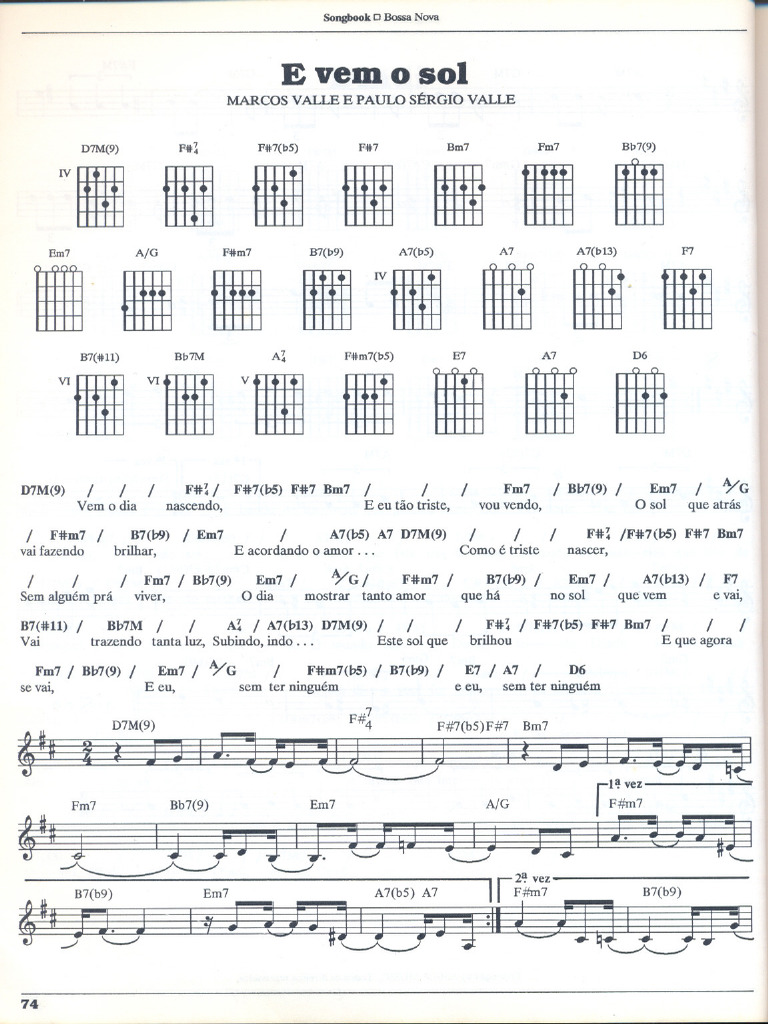 Songbook □ Bossa Nova
E vem o sol
MARCOS VALLE E PAULO SÉRGIO VALLE
D7M(9) F#7/4 F#7(b5) F#7 Bm7 Fm7 Bb7(9)
IV
Em7 A/G F#m7 B7(b9) A7(b5) A7 A7(b13) F7
IV
B7(#11) Bb7M A7/4 F#m7(b5) E7 A7 D6
VI VI V
D7M(9) / / / F#7/4 / F#7(b5) F#7 Bm7 / / / Fm7 / Bb7(9) / Em7 / A/G
Vem o dia nascendo, E eu tão triste, vou vendo, O sol que atrás
/ F#m7 / B7(b9) / Em7 / A7(b5) A7 D7M(9) / / / F#7/4 /F#7(b5) F#7 Bm7
vai fazendo brilhar, E acordando o amor . . . Como é triste nascer,
/ / / Fm7 / Bb7(9) Em7 / A/G / F#m7 / B7(b9) / Em7 / A7(b13) / F7
Sem alguém prá viver, O dia mostrar tanto amor que há no sol que vem e vai,
B7(#11) / Bb7M / / A7/4 / A7(b13) D7M(9) / / / F#7/4 / F#7(b5) F#7 Bm7 / / /
Vai trazendo tanta luz, Subindo, indo . . . Este sol que brilhou E que agora
Fm7 / Bb7(9) / Em7 / A/G / F#m7(b5) / B7(b9) / E7 / A7 / D6
se vai, E eu, sem ter ninguém e eu, sem ter ninguém
D7M(9) F#7/4 F#7(b5) F#7 Bm7
2/4
1ª vez
Fm7 Bb7(9) Em7 A/G F#m7
2ª vez
B7(b9) Em7 A7(b5) A7 F#m7 B7(b9)
74